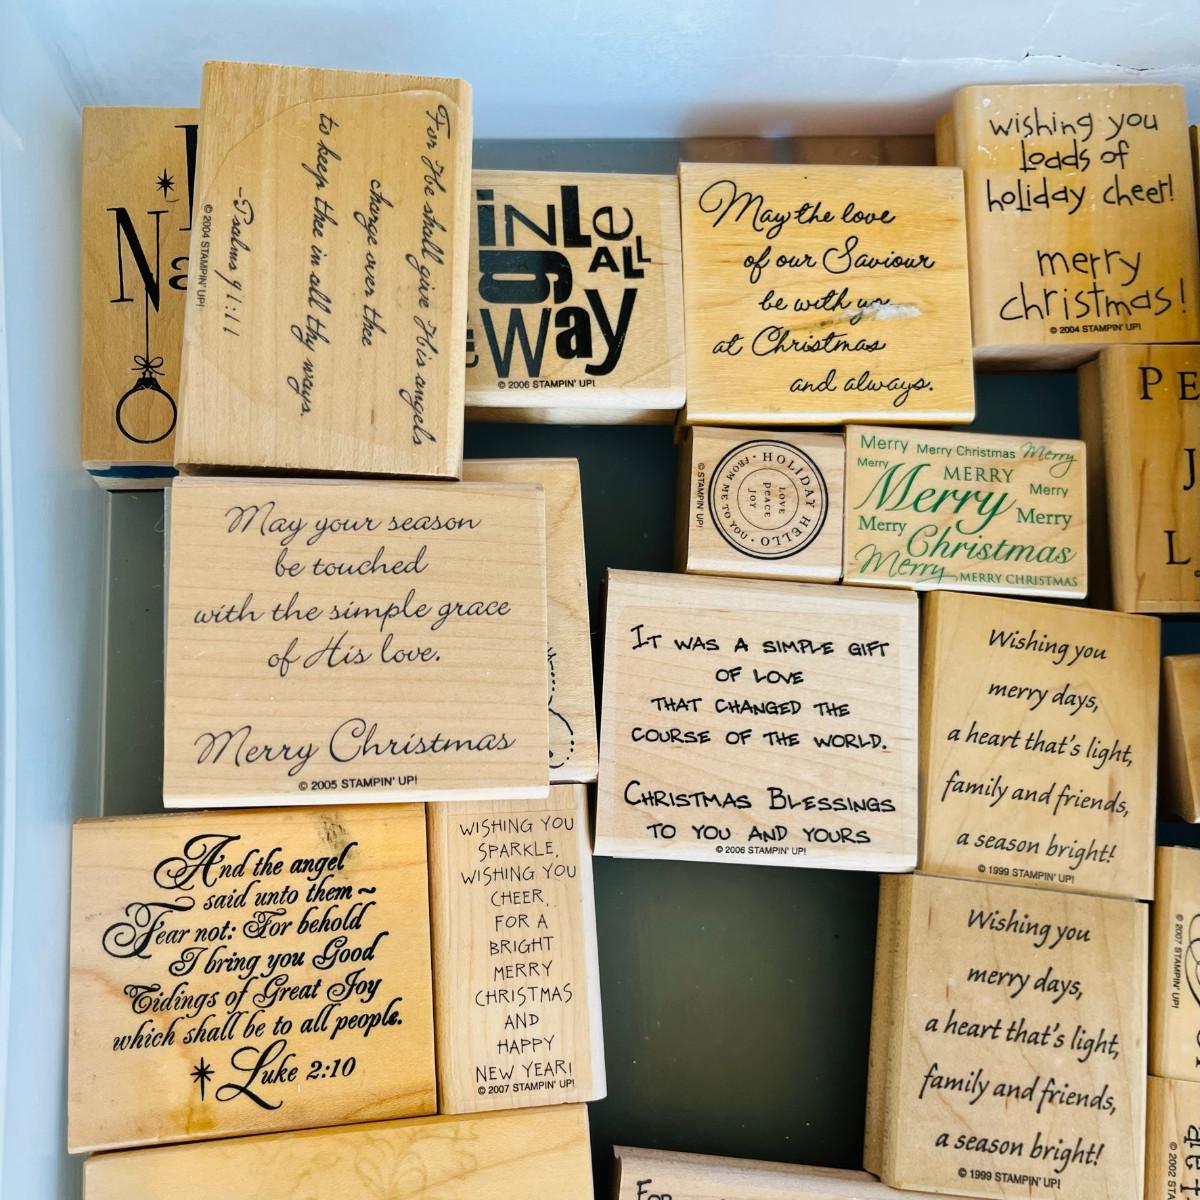 Na
For He shall give His angels
charge over thee
to keep thee in all thy ways.
-Psalms 91:11
© 2004 STAMPIN' UP!
ingle
ALL
THE Way
© 2006 STAMPIN' UP!
May the love
of our Saviour
be with you
at Christmas
and always.
wishing you
Loads of
holiday cheer!
merry
christmas!
© 2004 STAMPIN' UP!
PE
J
L
© STAMPIN' UP!
HOLIDAY HELLO
• FROM ME TO YOU •
LOVE
PEACE
JOY
Merry Merry Christmas Merry
Merry MERRY
Merry Merry
Merry Merry
Christmas
Merry MERRY CHRISTMAS
May your season
be touched
with the simple grace
of His love.
Merry Christmas
© 2005 STAMPIN' UP!
It was a simple gift
of love
that changed the
course of the world.
Christmas Blessings
to you and yours
© 2006 STAMPIN' UP!
Wishing you
merry days,
a heart that's light,
family and friends,
a season bright!
© 1999 STAMPIN' UP!
And the angel
said unto them~
Fear not: For behold
I bring you Good
Tidings of Great Joy
which shall be to all people.
Luke 2:10
WISHING YOU
SPARKLE,
WISHING YOU
CHEER,
FOR A
BRIGHT
MERRY
CHRISTMAS
AND
HAPPY
NEW YEAR!
© 2007 STAMPIN' UP!
Wishing you
merry days,
a heart that's light,
family and friends,
a season bright!
© 1999 STAMPIN' UP!
© 2007 STAMPIN' UP!
© 2002 STA
For